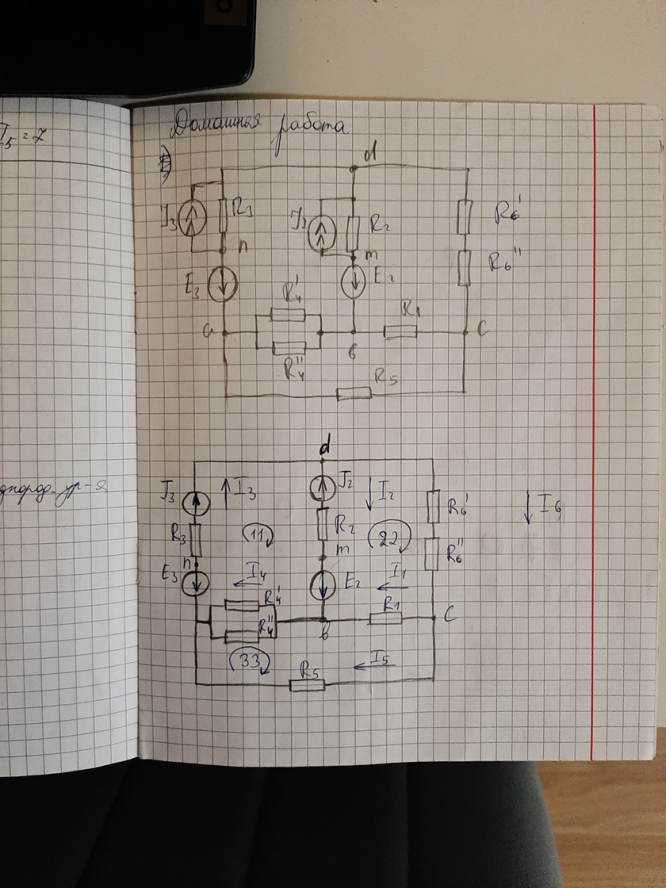 I₅=7
Домашняя работа
d
J₃
R₃
J₂
R₂
R₆'
R₆"
n
m
E₃
E₂
R₄'
R₁
a
в
c
R₄"
R₅
d
J₃
I₃
J₂
I₂
R₆'
I₆
R₃
11
R₂
22
R₆"
n
m
E₃
I₄
E₂
I₁
R₄'
R₁
c
R₄"
в
33
R₅
I₅